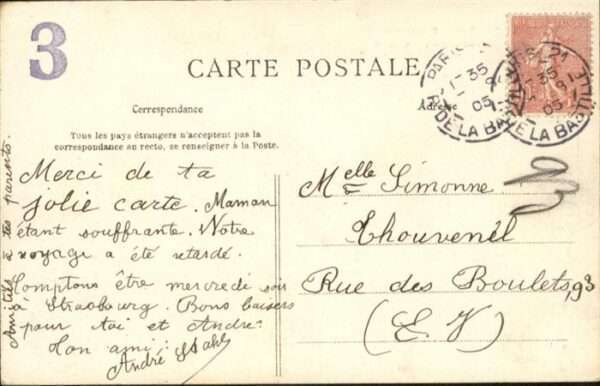 3
CARTE POSTALE
Correspondance
Adresse
Tous les pays étrangers n'acceptent pas la
correspondance au recto, se renseigner à la Poste.
Merci de ta
jolie carte. Maman
étant souffrante. Notre
voyage a été retardé.
Comptons être mercredi soir
à Strasbourg. Bons baisers
pour toi et André.
Ton ami:
André Stahl
Amitiés à tes parents.
Melle Simonne
Thouvenél
Rue des Boulets, 93
(E. V)
PARIS
35
05
R. DE LA BASTILLE
PARIS 21
35
05
R. DE LA BASTILLE